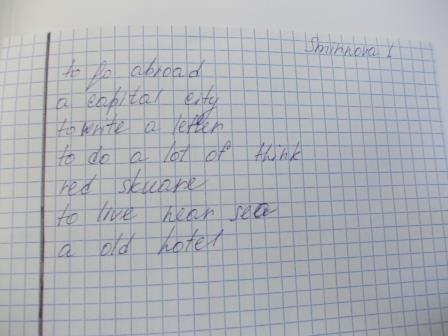 Smirnova L
to go abroad
a capital city
to write a letter
to do a lot of think
red skuare
to live near sea
a old hotel